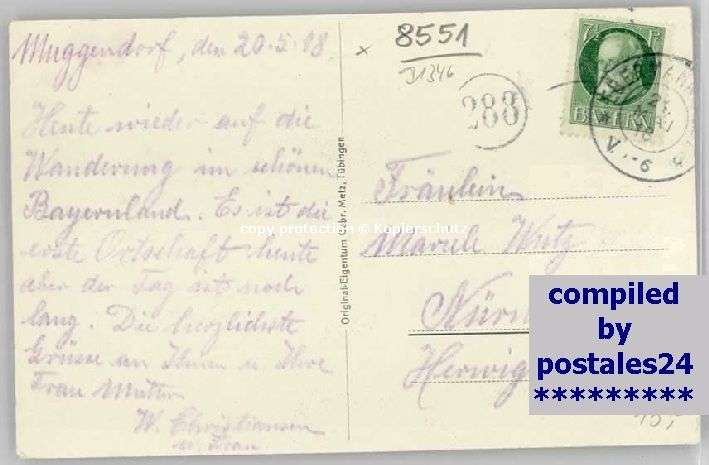 Muggendorf, den 20.5.18
Heute wieder auf die
Wanderung im schönen
Bayernland. Es ist die
erste Ortschaft heute
aber der Tag ist noch
lang. Die herzlichste
Grüsse an Ihnen u. Ihre
Frau Mutter
W. Christiansen
u. Frau
Original-Eigentum Gebr. Metz, Tübingen
8551
J1346
288
BAYERN
21
MAI
Fräulein
Wutz
Nürn
Herwig
15,-
copy protection © Kopierschutz
compiled
by
postales24
*********